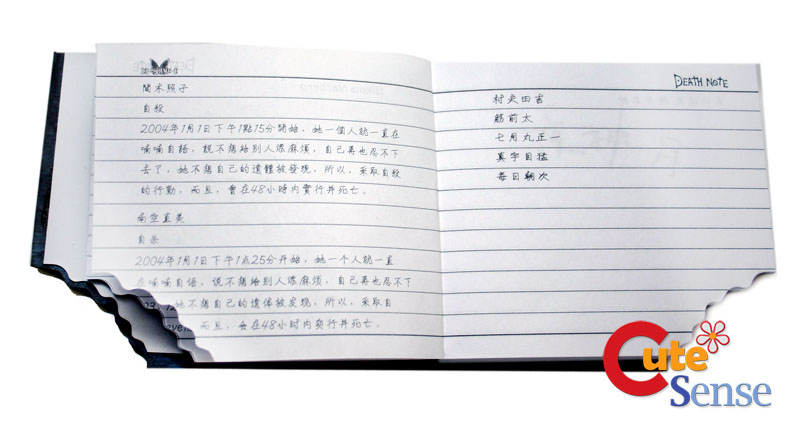 間木照子
自殺
2004年1月1日下午1點15分開始，她一個人就一直在
喃喃自語，說不想給別人添麻煩，自己再也忍不下
去了，她不想自己的遺體被發現，所以，采取自殺
的行動，而且，會在48小時內實行并死亡。
南空直美
自杀
2004年1月1日下午1点25分开始，她一个人就一直
在喃喃自语，说不想给别人添麻烦，自己再也忍不下
她不想自己的遗体被发现，所以，采取自
而且，会在48小时内实行并死亡。
DEATH NOTE
村尖田吉
筋前太
七月丸正一
真宇目猛
每日朝次
Cute Sense